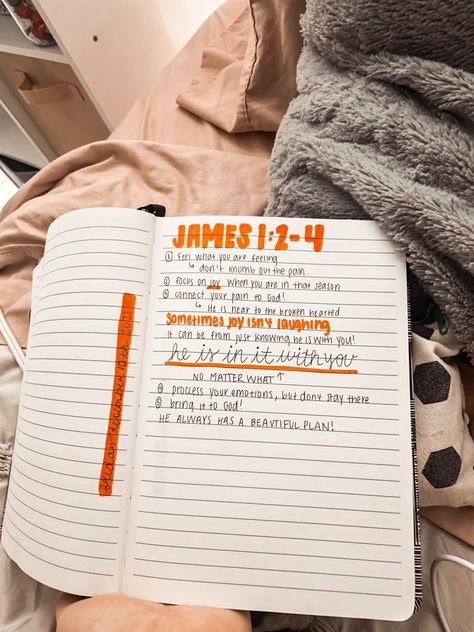 JAMES 1:2-4
① feel what you are feeling
↳ don't knumb out the pain.
② focus on joy when you are in that season
③ connect your pain to God!
↳ He is near to the broken hearted
Sometimes joy isn't laughing
it can be from just knowing he is with you!
he is in it with you
NO MATTER WHAT ↑
④ process your emotions, but don't stay there
⑤ bring it to God!
HE ALWAYS HAS A BEAUTIFUL PLAN!